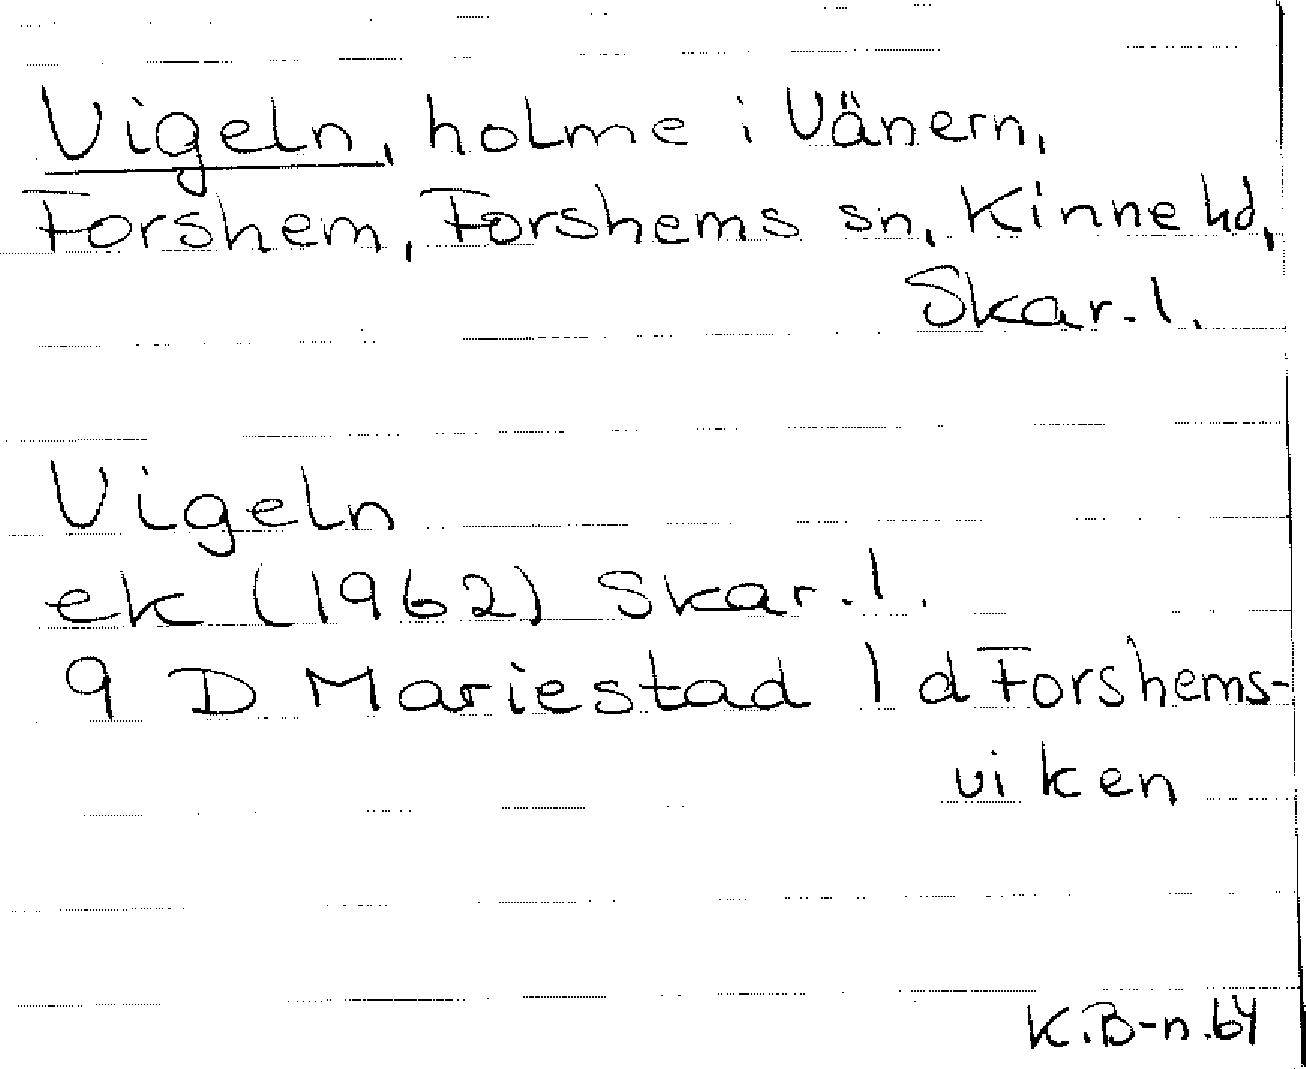 Vigeln, holme i Vänern,
Forshem, Forshems sn, Kinne hd,
Skar. l.
Vigeln
ek (1962) Skar. l.
9 D Mariestad 1 d Forshems-
viken
K.B-n.64